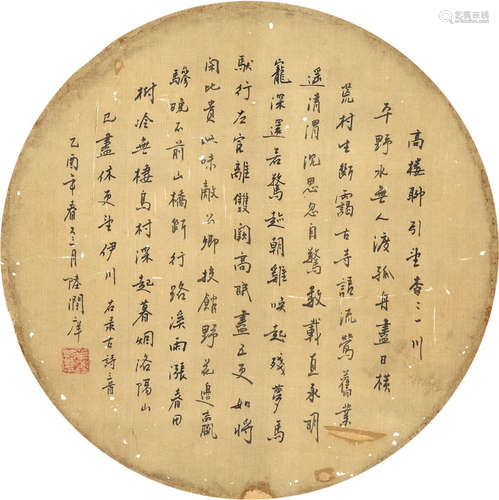 高樓聊引望杳々一川
平野水無人渡孤舟盡日橫
荒村生斷靄古寺語流鶯舊業
遥清渭沉思忽自驚數載直承明
寵深還若驚趁朝雞喚起殘夢馬
馱行左官離雙闕高眠盡五更如將
閑比貴此味敵公卿挾館野花邊羸
驂晚不前山橋斷行路溪雨漲春田
樹冷無棲鳥村深起暮烟洛陽山
已盡休更望伊川 右录古詩三首
乙酉年春三月陸潤庠